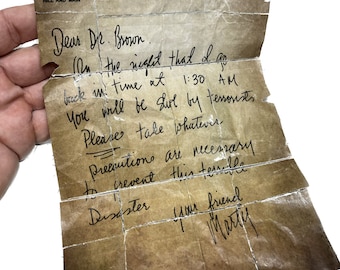 Dear Dr. Brown
On the night that I go
back in time at 1:30 AM
you will be shot by terrorists
Please take whatever
precautions are necessary
to prevent this terrible
Disaster
your friend
Marty